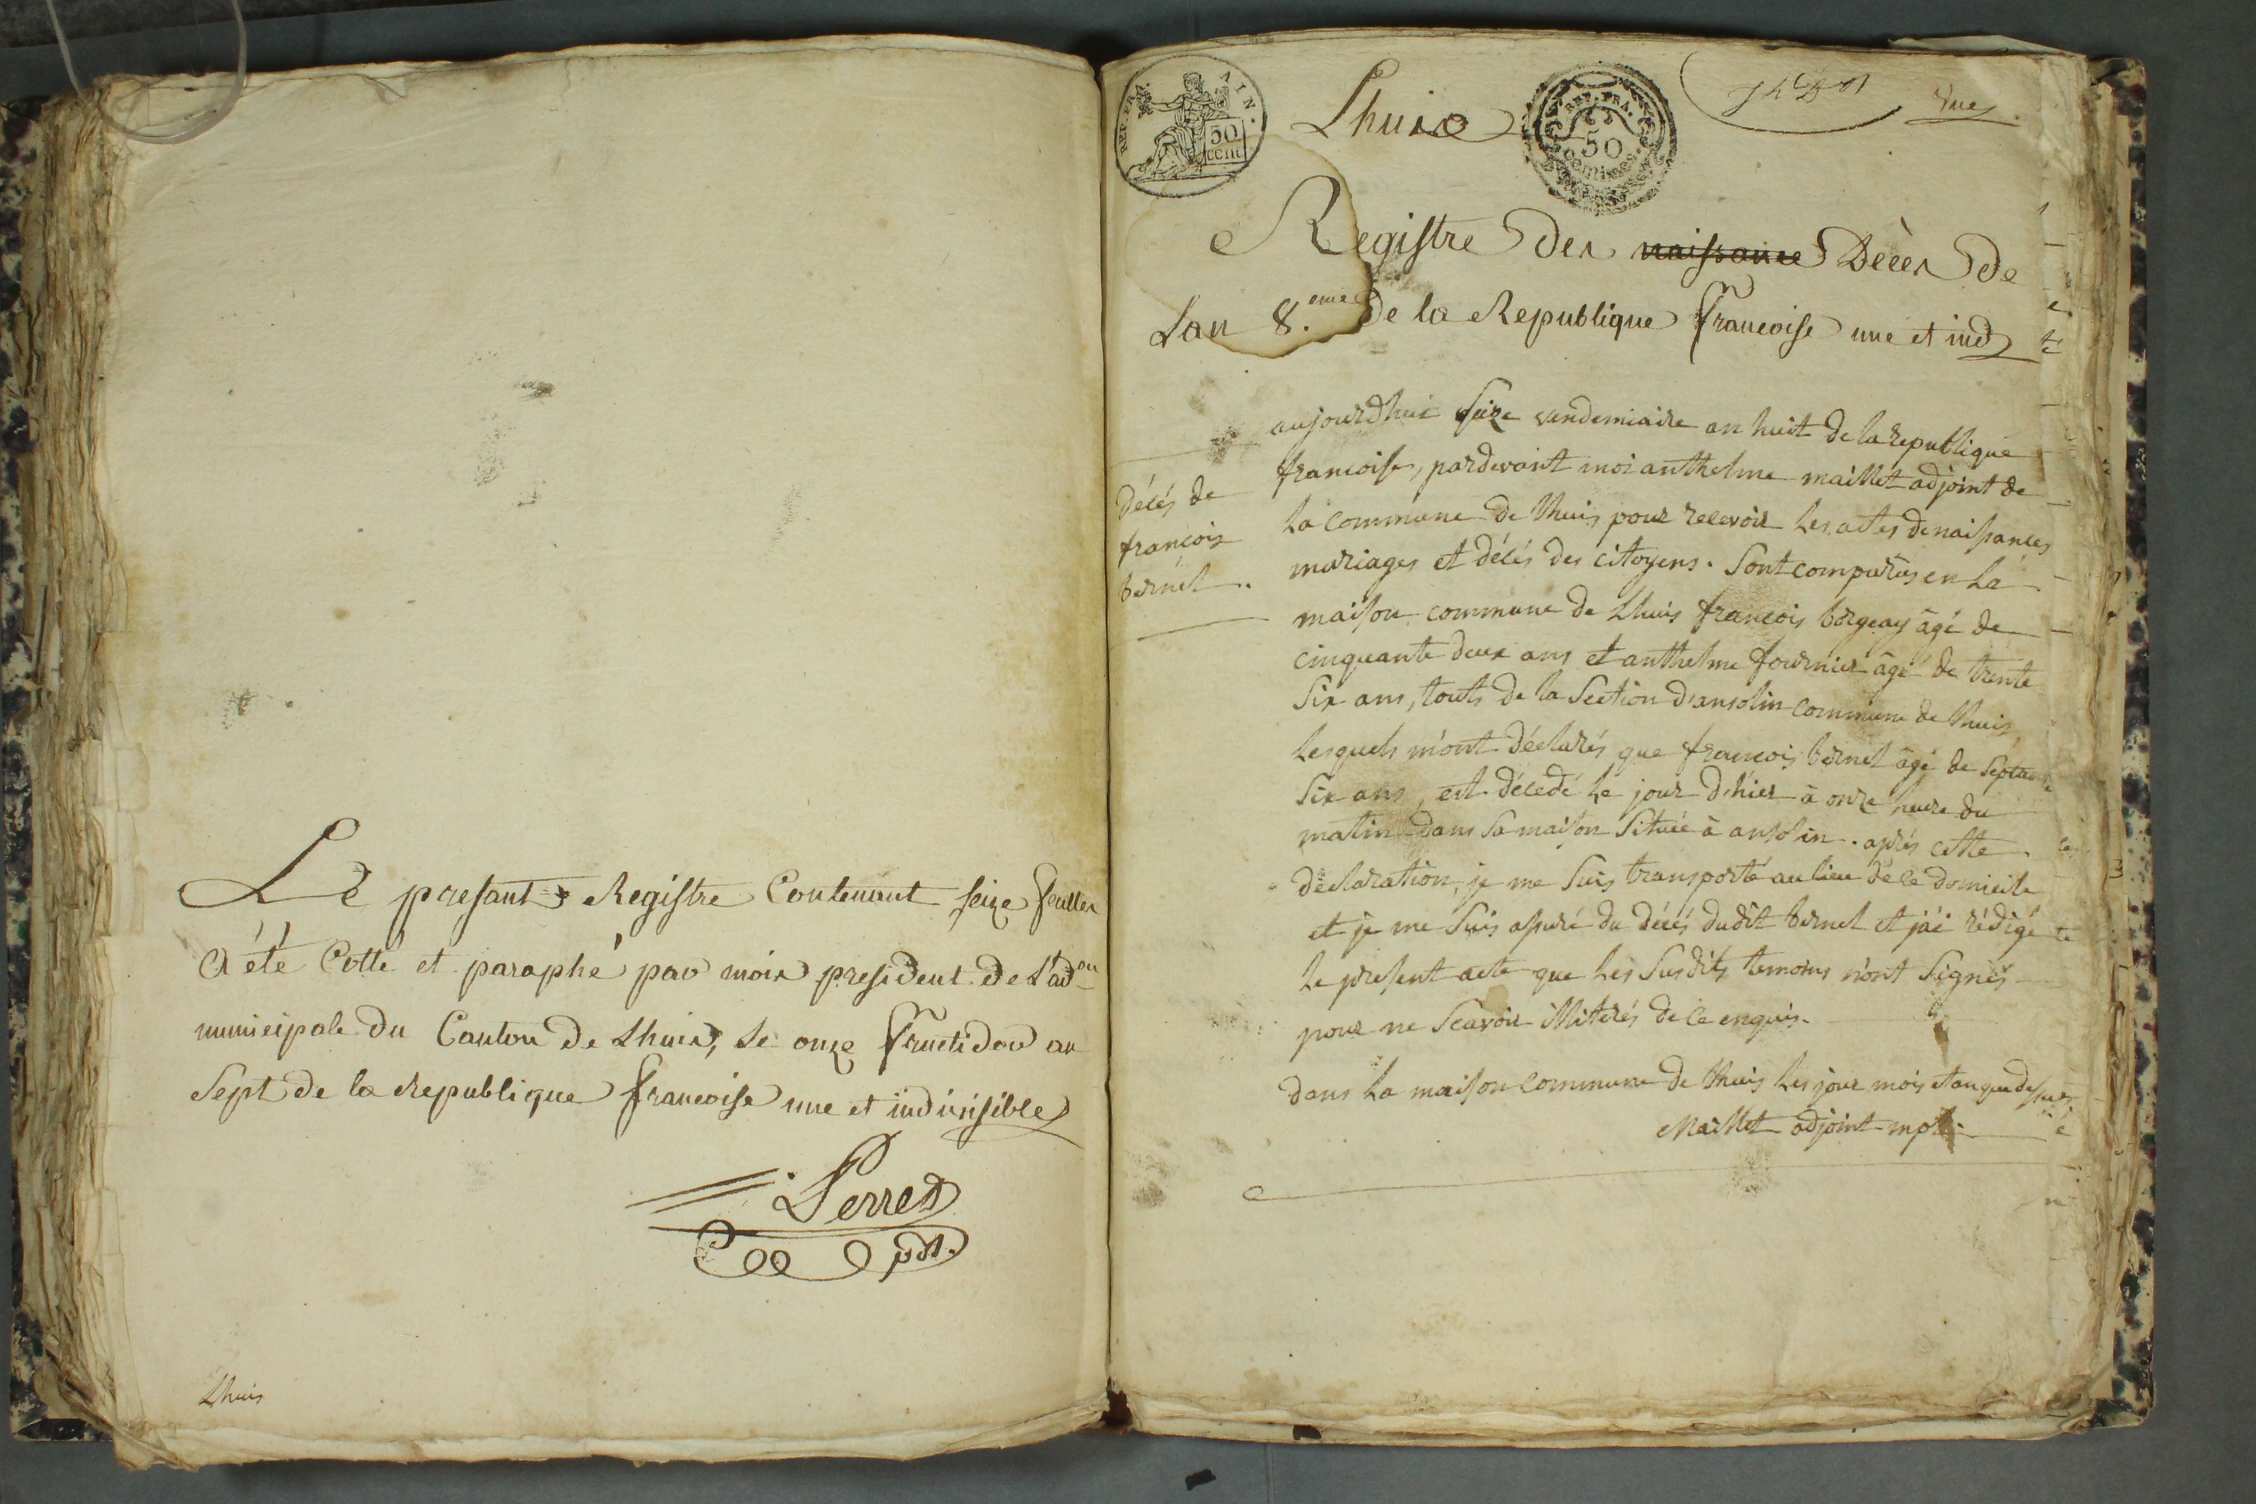 Le presant Registre Contenant seize feulles
A été Cotté et paraphé par moix president de l'adon
municipale du Canton de Lhuis, le onze fructidor an
Sept de la Republique francoise une et indivisible
Perret
pdt.
Lhuis
REP. FRA.
50
cent
Lhuis
REP. FRA.
50
centimes
Registre des naissance Décès de
Lan 8.eme de la Republique francoise une et ind
Décés de
françois
bernet.
aujourdhui seize vendemiaire an huit de la republique
francoise, pardevant moi anthelme maillet adjoint de
la commune de lhuis pour recevoir les actes de naissances
mariages et décés des citoyens. Sont comparus en la
maison commune de Lhuis françois borgeay âgé de
cinquante deux ans et anthelme fournier âgé de trente
Six ans, touts de la Section d'ansolin commune de lhuis,
lesquels m'ont déclarés que françois bernet âgé de septante
Six ans, est décedé le jour d'hier à onze heure du
matin dans sa maison Située à ansolin. aprés cette
declaration, je me suis transporté au lieu de ce domicile
et je me suis assuré du décés dudit bernet et j'ai rédigé
le present acte que les susdits temoins n'ont Signés
pour ne scavoir illiterés de ce enquis.
dans la maison commune de lhuis les jour mois et an que dessus
Maillet adjoint mpl.